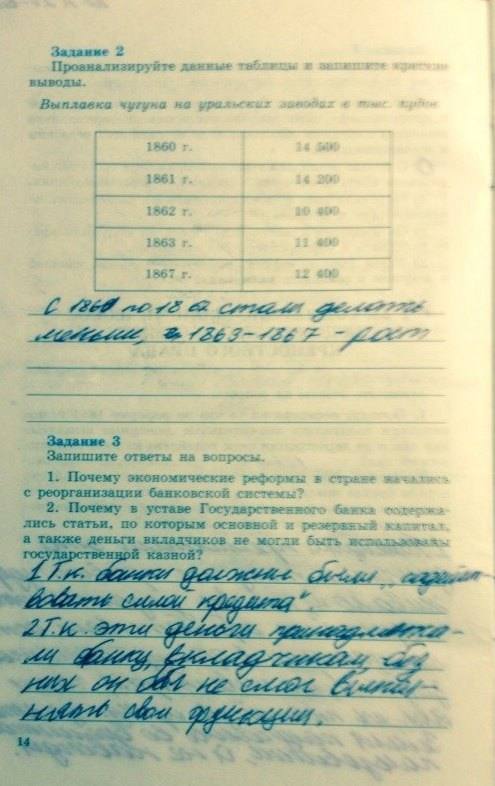 Задание 2
Проанализируйте данные таблицы и запишите краткие
выводы.
Выплавка чугуна на уральских заводах в тыс. пудов
1860 г. 14 500
1861 г. 14 200
1862 г. 10 400
1863 г. 11 400
1867 г. 12 400
С 1861 по 1862 стали делать
меньше, 1863-1867 - рост
Задание 3
Запишите ответы на вопросы.
1. Почему экономические реформы в стране начались
с реорганизации банковской системы?
2. Почему в уставе Государственного банка содержа-
лись статьи, по которым основной и резервный капитал,
а также деньги вкладчиков не могли быть использованы
государственной казной?
1 Т.к. банки должны были „содейст-
вовать силой кредита".
2 Т.к. эти деньги принадлежа-
ли банку, вкладчикам, без
них он бы не смог выпол-
нять свои функции.
14